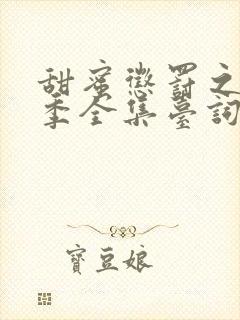 甜蜜懲罰之
季全集臺詞
寶豆娘